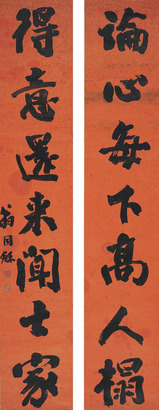 論心每下高人榻
得意還来聞士家
翁同龢